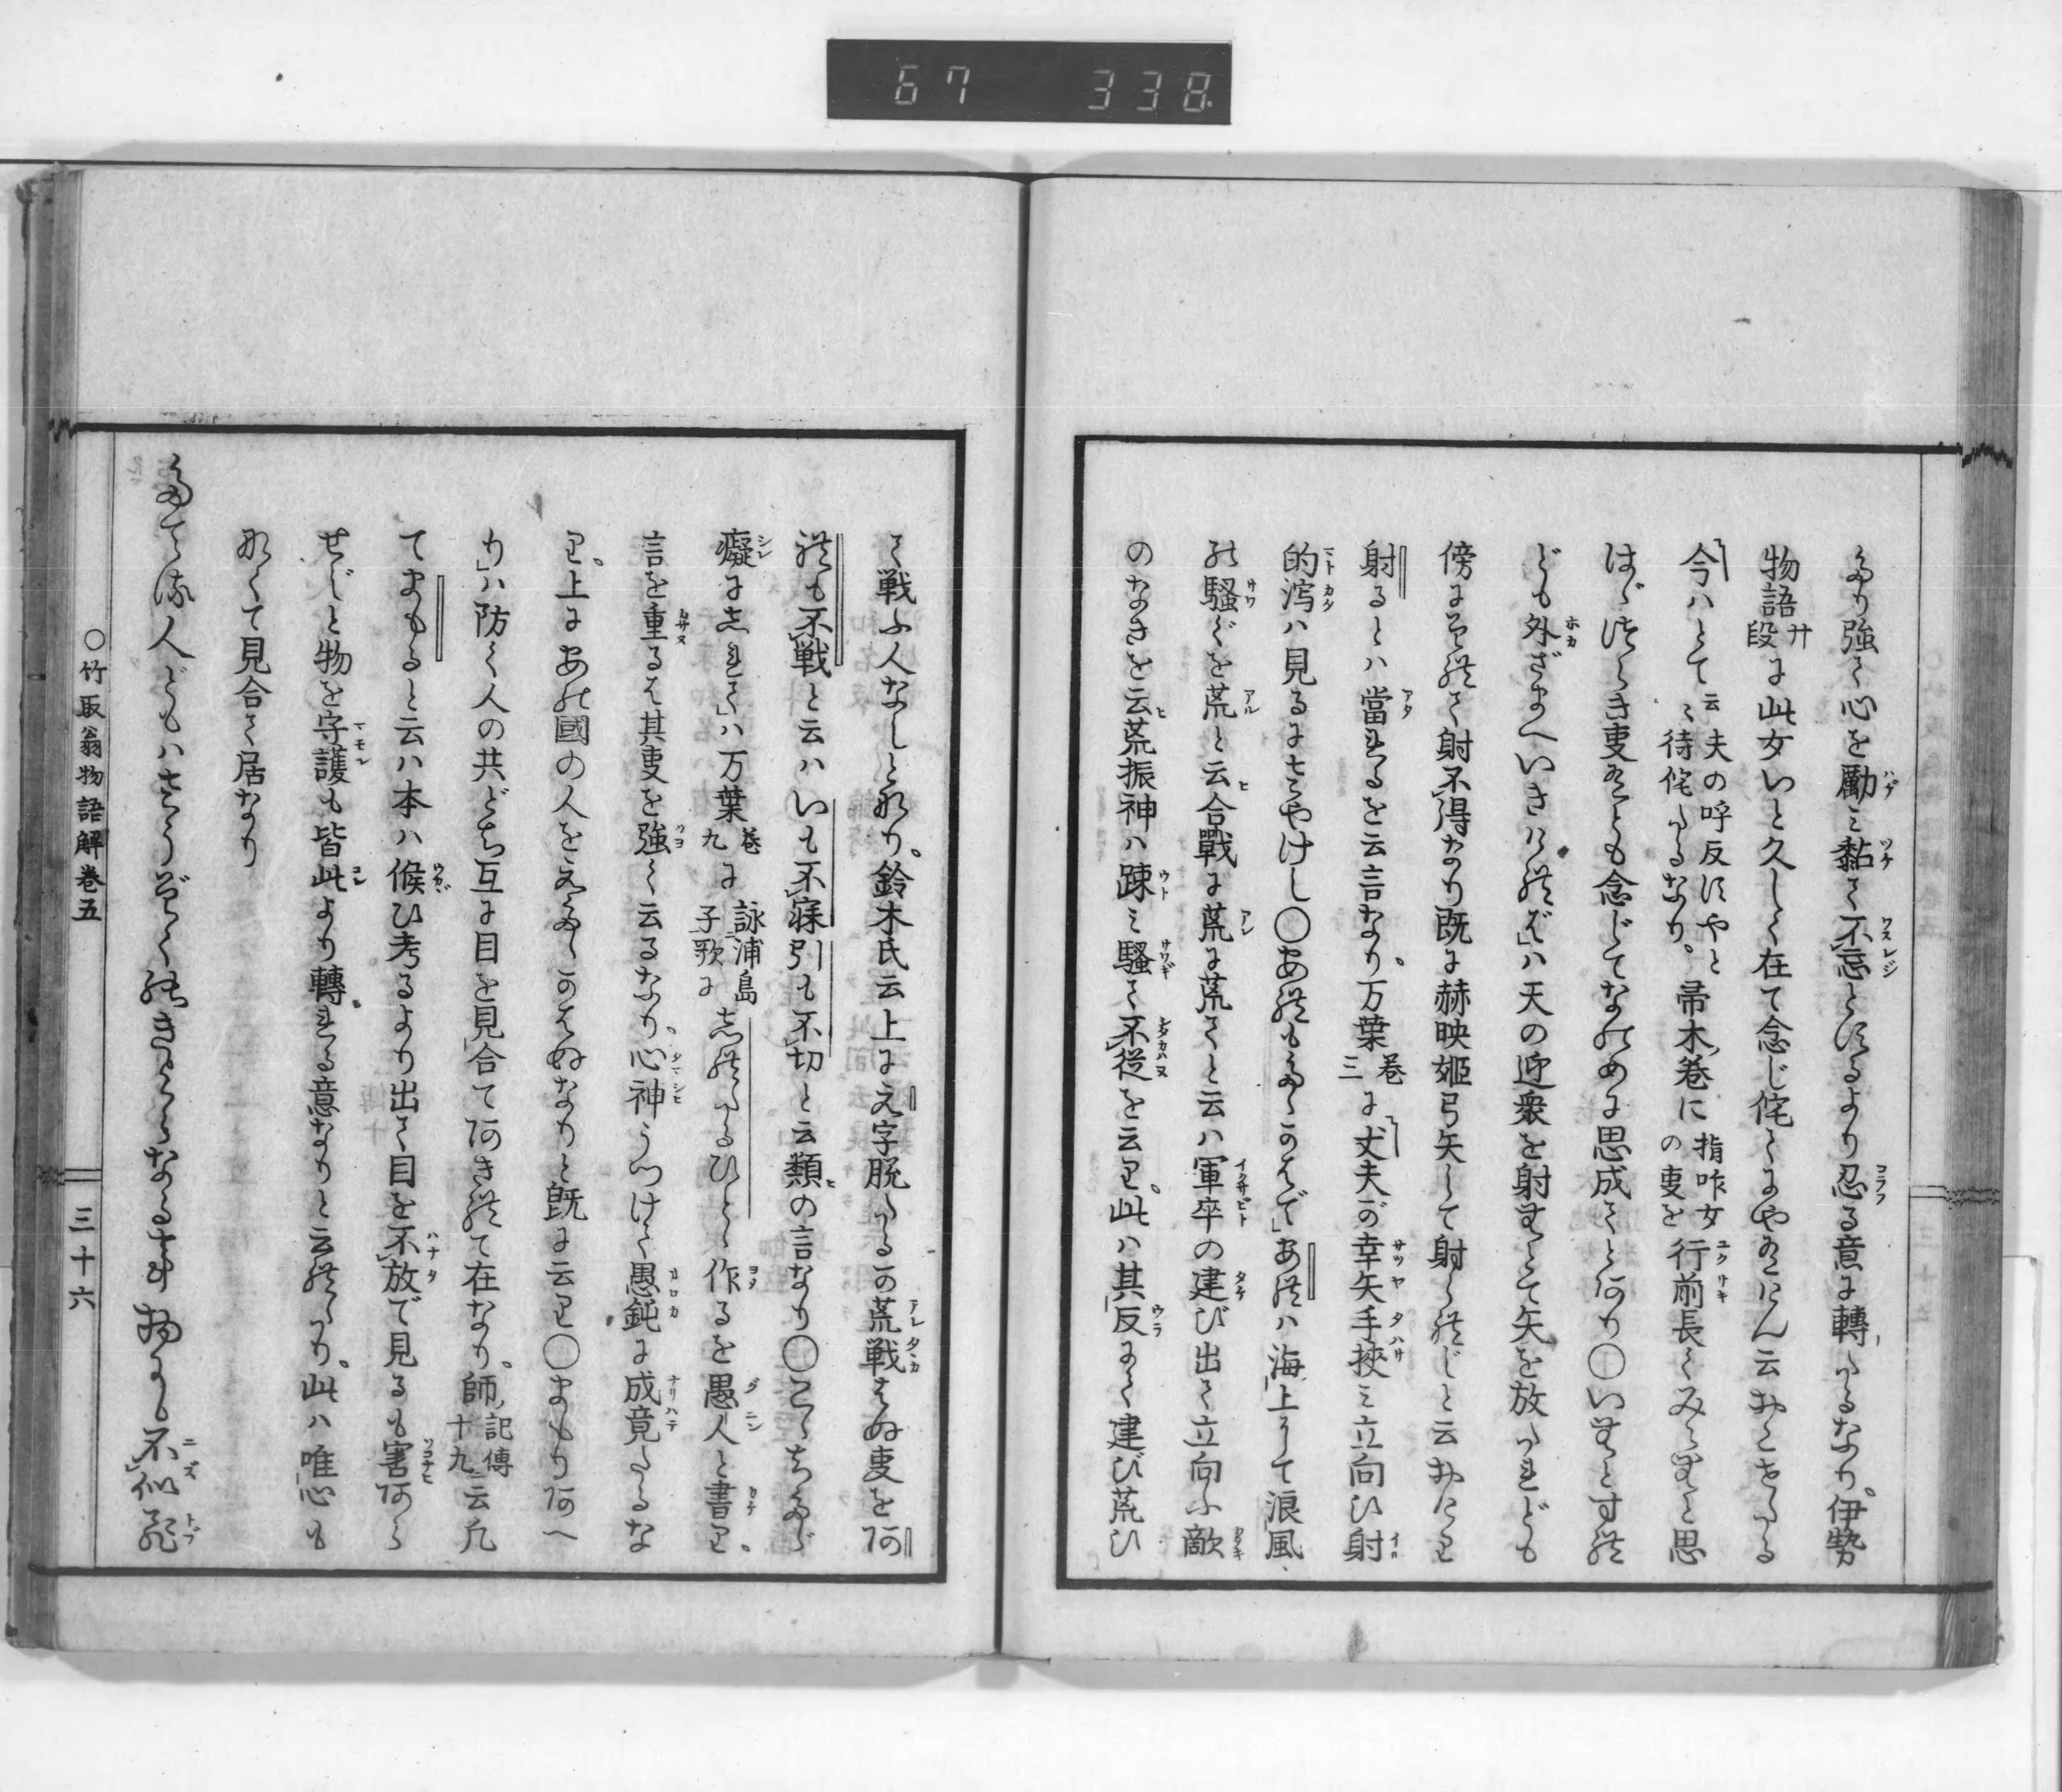 67 338
より強く心を勵ミ黏て不忘とするより忍る意に轉れるなり。伊勢
物語廿段に此女いと久しく在て念じ侘てにや有けん云おこせたる
今ハとて云々夫の呼反すやと待侘たるなり。帚木ノ巻に指咋女の事を行前長くみえむと思
はゞつらき事有とも念じてなのめに思成てと阿り〇いむとす禮
ども外ざまへいきけ禮ば」ハ天の迎衆を射むとて矢を放たれども
傍にそ禮て射不得なり既に赫映姫弓矢して射ら禮じと云おけり
射るとハ當るを云言なり。万葉巻三に丈夫が幸矢手挾ミ立向ひ射
的泻ハ見るにさやけし〇あ禮もたゝかはで」あ禮ハ海上にて浪風
の騒ぐを荒と云合戰に荒に荒てと云ハ軍卒の建び出て立向ふ敵
のなきを云荒振神ハ踈ミ騒て不從を云り。此ハ其反にて建び荒ひ
て戦ふ人なしとなり。鈴木氏云上に え字脱たるか荒戦はぬ事を阿
禮も不戦と云ハいも不寐引も不切と云類の言なり〇こゝちたゞ
癡にしれて」ハ万葉巻九に詠浦島子歌に志禮たるひと作るを愚人と書り。
言を重るは其事を強く云るなり。心神うつけて愚鈍に成竟たるな
り。上にあの國の人をえたゝかはぬなりと既に云り〇まもり阿へ
り」ハ防く人の共どち互に目を見合て阿き禮て在なり。師記傳十九ニ云凡
てまもると云ハ本ハ候ひ考るより出て目を不放で見るも害阿ら
せじと物を守護も皆此より轉れる意なりと云禮たり。此ハ唯心も
なくて見合て居なり
たてる人どもハさうぞくのきよらなる事物にも不似飛
〇竹取翁物語解巻五
三十六